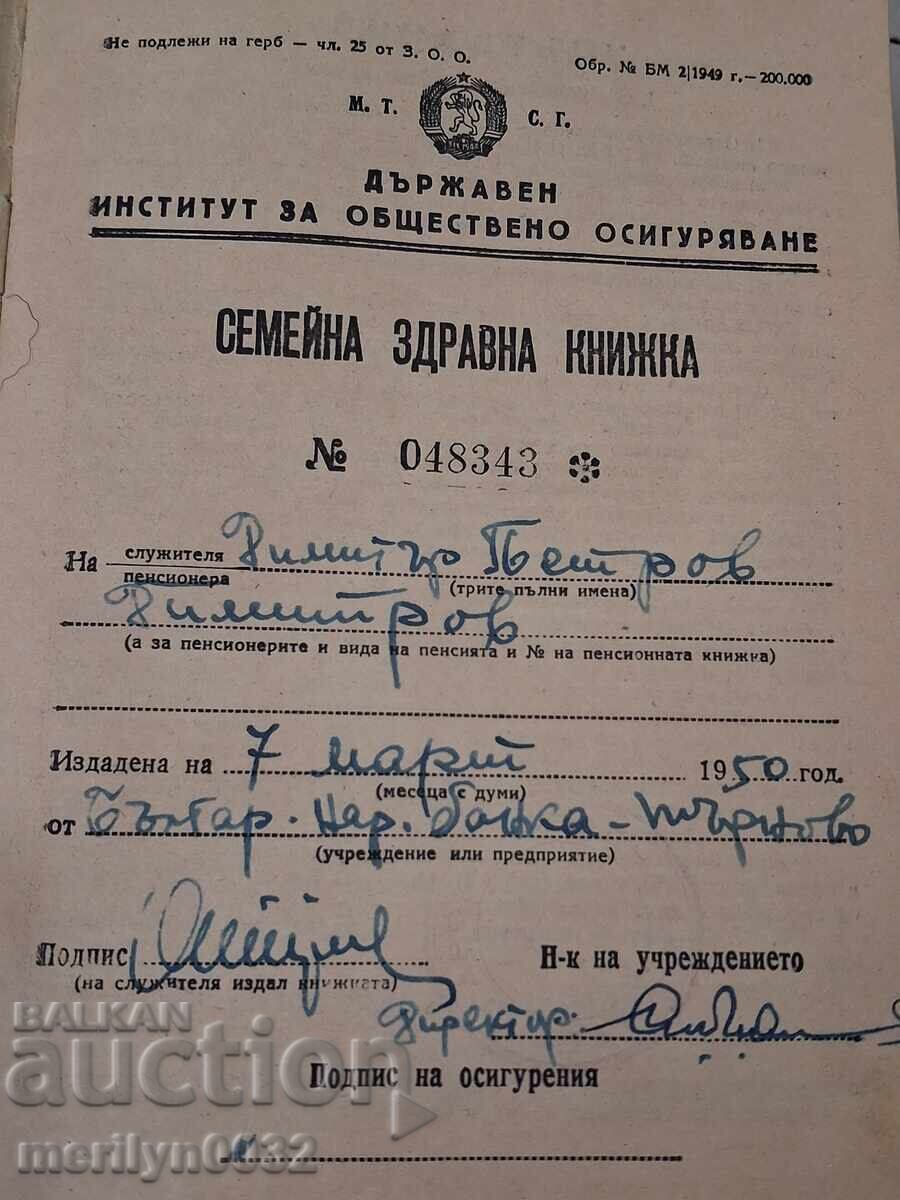 Не подлежи на герб — чл. 25 от З. О. О.
Обр. № БМ 2|1949 г.—200.000
М. Т. С. Г.
ДЪРЖАВЕН
ИНСТИТУТ ЗА ОБЩЕСТВЕНО ОСИГУРЯВАНЕ
СЕМЕЙНА ЗДРАВНА КНИЖКА
№ 048343
На служителя Димитър Петров
пенсионера
(трите пълни имена)
Димитров
(а за пенсионерите и вида на пенсията и № на пенсионната книжка)
Издадена на 7 март 1950 год.
(месеца с думи)
от Българ. Нар. банка - Търново
(учреждение или предприятие)
Подпис
Н-к на учреждението
(на служителя издал книжката)
Директор:
Подпис на осигурения
BALKAN
auction
merilyn0032